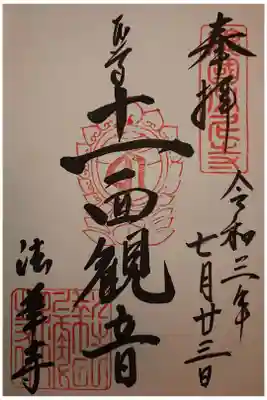 奉拝
令和三年
七月廿三日
本尊
十一面観音
法華寺